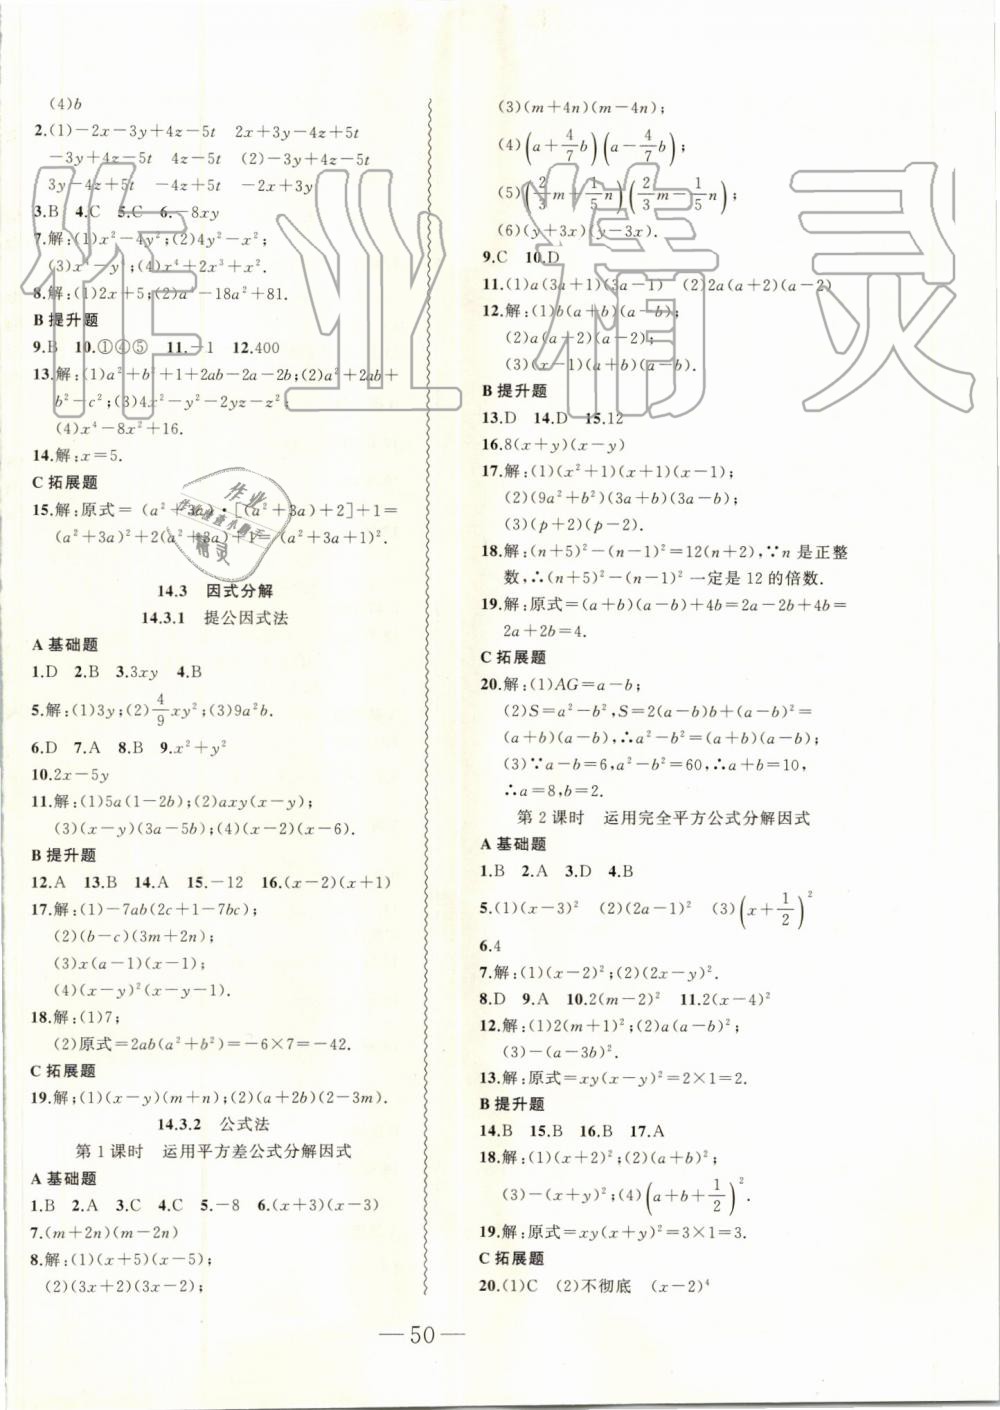 (4)b
2.(1)-2x-3y+4z-5t 2x+3y-4z+5t
-3y+4z-5t 4z-5t (2)-3y+4z-5t
3y-4z+5t -4z+5t -2x+3y
3.B 4.C 5.C 6.-8xy
7.解:(1)x²-4y²;(2)4y²-x²;
(3)x⁴-y⁴;(4)x⁴+2x³+x².
8.解:(1)2x+5;(2)a⁴-18a²+81.
B 提升题
9.B 10.①④⑤ 11.-1 12.400
13.解:(1)a²+b²+1+2ab-2a-2b;(2)a²+2ab+
b²-c²;(3)4x²-y²-2yz-z²;
(4)x⁴-8x²+16.
14.解:x=5.
C 拓展题
15.解:原式=(a²+3a)·[(a²+3a)+2]+1=
(a²+3a)²+2(a²+3a)+1=(a²+3a+1)².
14.3 因式分解
14.3.1 提公因式法
A 基础题
1.D 2.B 3.3xy 4.B
5.解:(1)3y;(2)4/9xy²;(3)9a²b.
6.D 7.A 8.B 9.x²+y²
10.2x-5y
11.解:(1)5a(1-2b);(2)axy(x-y);
(3)(x-y)(3a-5b);(4)(x-2)(x-6).
B 提升题
12.A 13.B 14.A 15.-12 16.(x-2)(x+1)
17.解:(1)-7ab(2c+1-7bc);
(2)(b-c)(3m+2n);
(3)x(a-1)(x-1);
(4)(x-y)²(x-y-1).
18.解:(1)7;
(2)原式=2ab(a²+b²)=-6×7=-42.
C 拓展题
19.解;(1)(x-y)(m+n);(2)(a+2b)(2-3m).
14.3.2 公式法
第1课时 运用平方差公式分解因式
A 基础题
1.B 2.A 3.C 4.C 5.-8 6.(x+3)(x-3)
7.(m+2n)(m-2n)
8.解:(1)(x+5)(x-5);
(2)(3x+2)(3x-2);
(3)(m+4n)(m-4n);
(4)(a+4/7b)(a-4/7b);
(5)(2/3m+1/5n)(2/3m-1/5n);
(6)(y+3x)(y-3x).
9.C 10.D
11.(1)a(3a+1)(3a-1) (2)2a(a+2)(a-2)
12.解:(1)b(a+b)(a-b);
(2)a(a+2)(a-2);
(3)(x-1)(a+b)(a-b).
B 提升题
13.D 14.D 15.12
16.8(x+y)(x-y)
17.解:(1)(x²+1)(x+1)(x-1);
(2)(9a²+b²)(3a+b)(3a-b);
(3)(p+2)(p-2).
18.解:(n+5)²-(n-1)²=12(n+2),∵n 是正整
数,∴(n+5)²-(n-1)² 一定是 12 的倍数.
19.解:原式=(a+b)(a-b)+4b=2a-2b+4b=
2a+2b=4.
C 拓展题
20.解:(1)AG=a-b;
(2)S=a²-b²,S=2(a-b)b+(a-b)²=
(a+b)(a-b),∴a²-b²=(a+b)(a-b);
(3)∵a-b=6,a²-b²=60,∴a+b=10,
∴a=8,b=2.
第2课时 运用完全平方公式分解因式
A 基础题
1.B 2.A 3.D 4.B
5.(1)(x-3)² (2)(2a-1)² (3)(x+1/2)²
6.4
7.解:(1)(x-2)²;(2)(2x-y)².
8.D 9.A 10.2(m-2)² 11.2(x-4)²
12.解:(1)2(m+1)²;(2)a(a-b)²;
(3)-(a-3b)².
13.解:原式=xy(x-y)²=2×1=2.
B 提升题
14.B 15.B 16.B 17.A
18.解:(1)(x+2)²;(2)(a+b)²;
(3)-(x+y)²;(4)(a+b+1/2)².
19.解:原式=xy(x+y)²=3×1=3.
C 拓展题
20.(1)C (2)不彻底 (x-2)⁴
— 50 —
作业精灵
作业
精灵